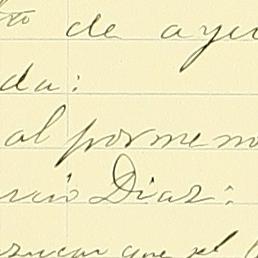 to de ayu
da:
al pormeno
rcio Diaz:
que el